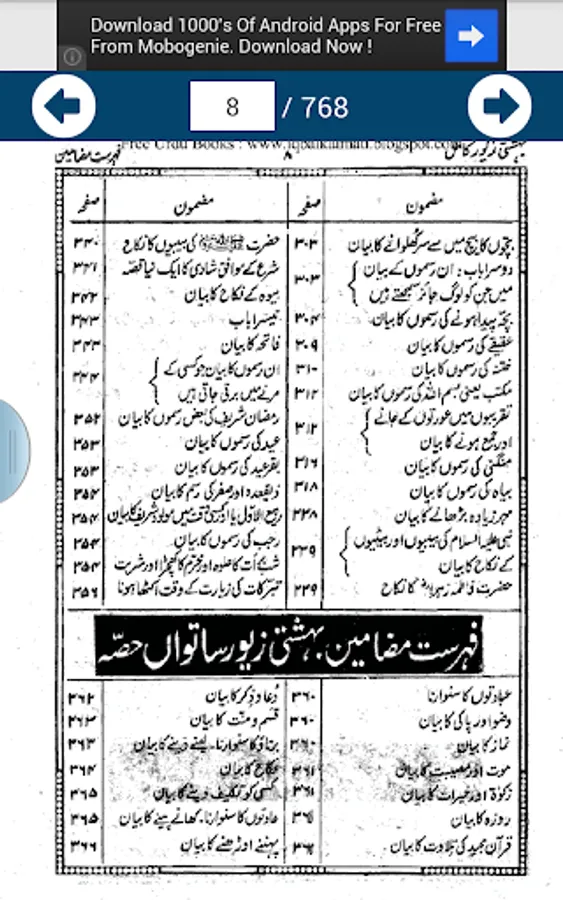 Download 1000's Of Android Apps For Free
From Mobogenie. Download Now !
8 / 768
Free Urdu Books : www.iqbalkalmati.blogspot.com
بہشتی زیور کامل ۸ فہرست مضامین
مضمون صفحہ
بچوں کا بیچ میں سے سر کھلوانے کا بیان ۳۰۳
دوسرا باب: ان رسموں کے بیان
میں جن کو لوگ جائز سمجھتے ہیں ۳۰۳
بچہ پیدا ہونے کی رسموں کا بیان ۳۰۴
عقیقے کی رسموں کا بیان ۳۰۹
ختنہ کی رسموں کا بیان ۳۱۰
مکتب یعنی بسم اللہ کی رسموں کا بیان ۳۱۲
تقریبوں میں عورتوں کے جانے
اور جمع ہونے کا بیان ۳۱۲
منگنی کی رسموں کا بیان ۳۱۶
بیاہ کی رسموں کا بیان ۳۱۸
مہر زیادہ بڑھانے کا بیان ۳۳۸
نبی علیہ السلام کی بیبیوں اور بیٹیوں
کے نکاح کا بیان ۳۳۹
حضرت فاطمہ زہرا کا نکاح ۳۳۹
مضمون صفحہ
حضرت ﷺ کی بیبیوں کا نکاح ۳۴۰
شرع کے موافق شادی کا ایک نیا قصّہ ۳۴۱
بیوہ کے نکاح کا بیان ۳۴۲
تیسرا باب ۳۴۳
فاتحہ کا بیان ۳۴۳
ان رسموں کا بیان جو کسی کے
مرنے میں برتی جاتی ہیں ۳۴۴
رمضان شریف کی بعض رسموں کا بیان ۳۵۲
عید کی رسموں کا بیان ۳۵۳
بقرعید کی رسموں کا بیان ۳۵۳
ذیقعدہ اور صفر کی رسم کا بیان ۳۵۴
ربیع الاول یا اور کسی وقت میں مولود شریف کا بیان ۳۵۴
رجب کی رسموں کا بیان ۳۵۴
شب برأت کا حلوہ اور محرم کا کھچڑا اور شربت ۳۵۴
تبرکات کی زیارت کے وقت اکٹھا ہونا ۳۵۶
فہرست مضامین بہشتی زیور ساتواں حصّہ
عبادتوں کا سنوارنا ۳۶۰
وضو اور پاکی کا بیان ۳۶۰
نماز کا بیان ۳۶۰
موت اور مصیبت کا بیان ۳۶۱
زکوٰۃ اور خیرات کا بیان ۳۶۱
روزہ کا بیان
قرآن مجید کی تلاوت کا بیان
دُعا و ذکر کا بیان ۳۶۲
قسم و منّت کا بیان ۳۶۳
برتاؤ کا سنوارنا، لینے دینے کا بیان ۳۶۳
نکاح کا بیان ۳۶۴
کسی کو تکلیف دینے کا بیان ۳۶۵
عادتوں کا سنوارنا، کھانے پینے کا بیان ۳۶۵
پہننے اوڑھنے کا بیان ۳۶۶